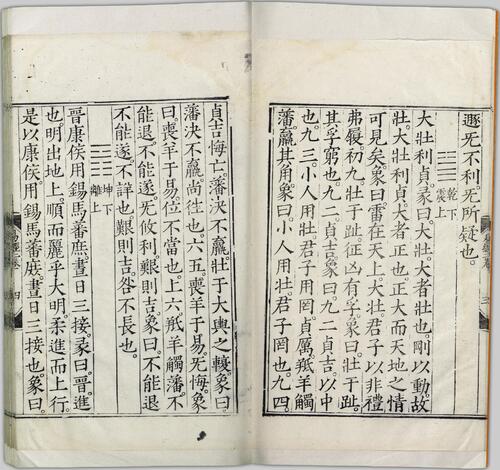 遯无不利。无所疑也。
乾下
震上
大壯利貞。彖曰。大壯。大者壯也。剛以動。故
壯。大壯利貞。大者正也。正大而天地之情
可見矣。象曰。雷在天上。大壯。君子以非禮
弗履。初九。壯于趾。征凶有孚。象曰。壯于趾。
其孚窮也。九二。貞吉。象曰。九二貞吉。以中
也。九三。小人用壯。君子用罔。貞厲。羝羊觸
藩。羸其角。象曰。小人用壯。君子罔也。九四。
貞吉悔亡。藩決不羸。壯于大輿之輹。象曰。
藩決不羸。尚往也。六五。喪羊于易。无悔。象
曰。喪羊于易。位不當也。上六。羝羊觸藩。不
能退。不能遂。无攸利。艱則吉。象曰。不能退
不能遂。不詳也。艱則吉。咎不長也。
坤下
離上
晉。康侯用錫馬蕃庶。晝日三接。彖曰。晉。進
也。明出地上。順而麗乎大明。柔進而上行。
是以康侯用錫馬蕃庶。晝日三接也。象曰。